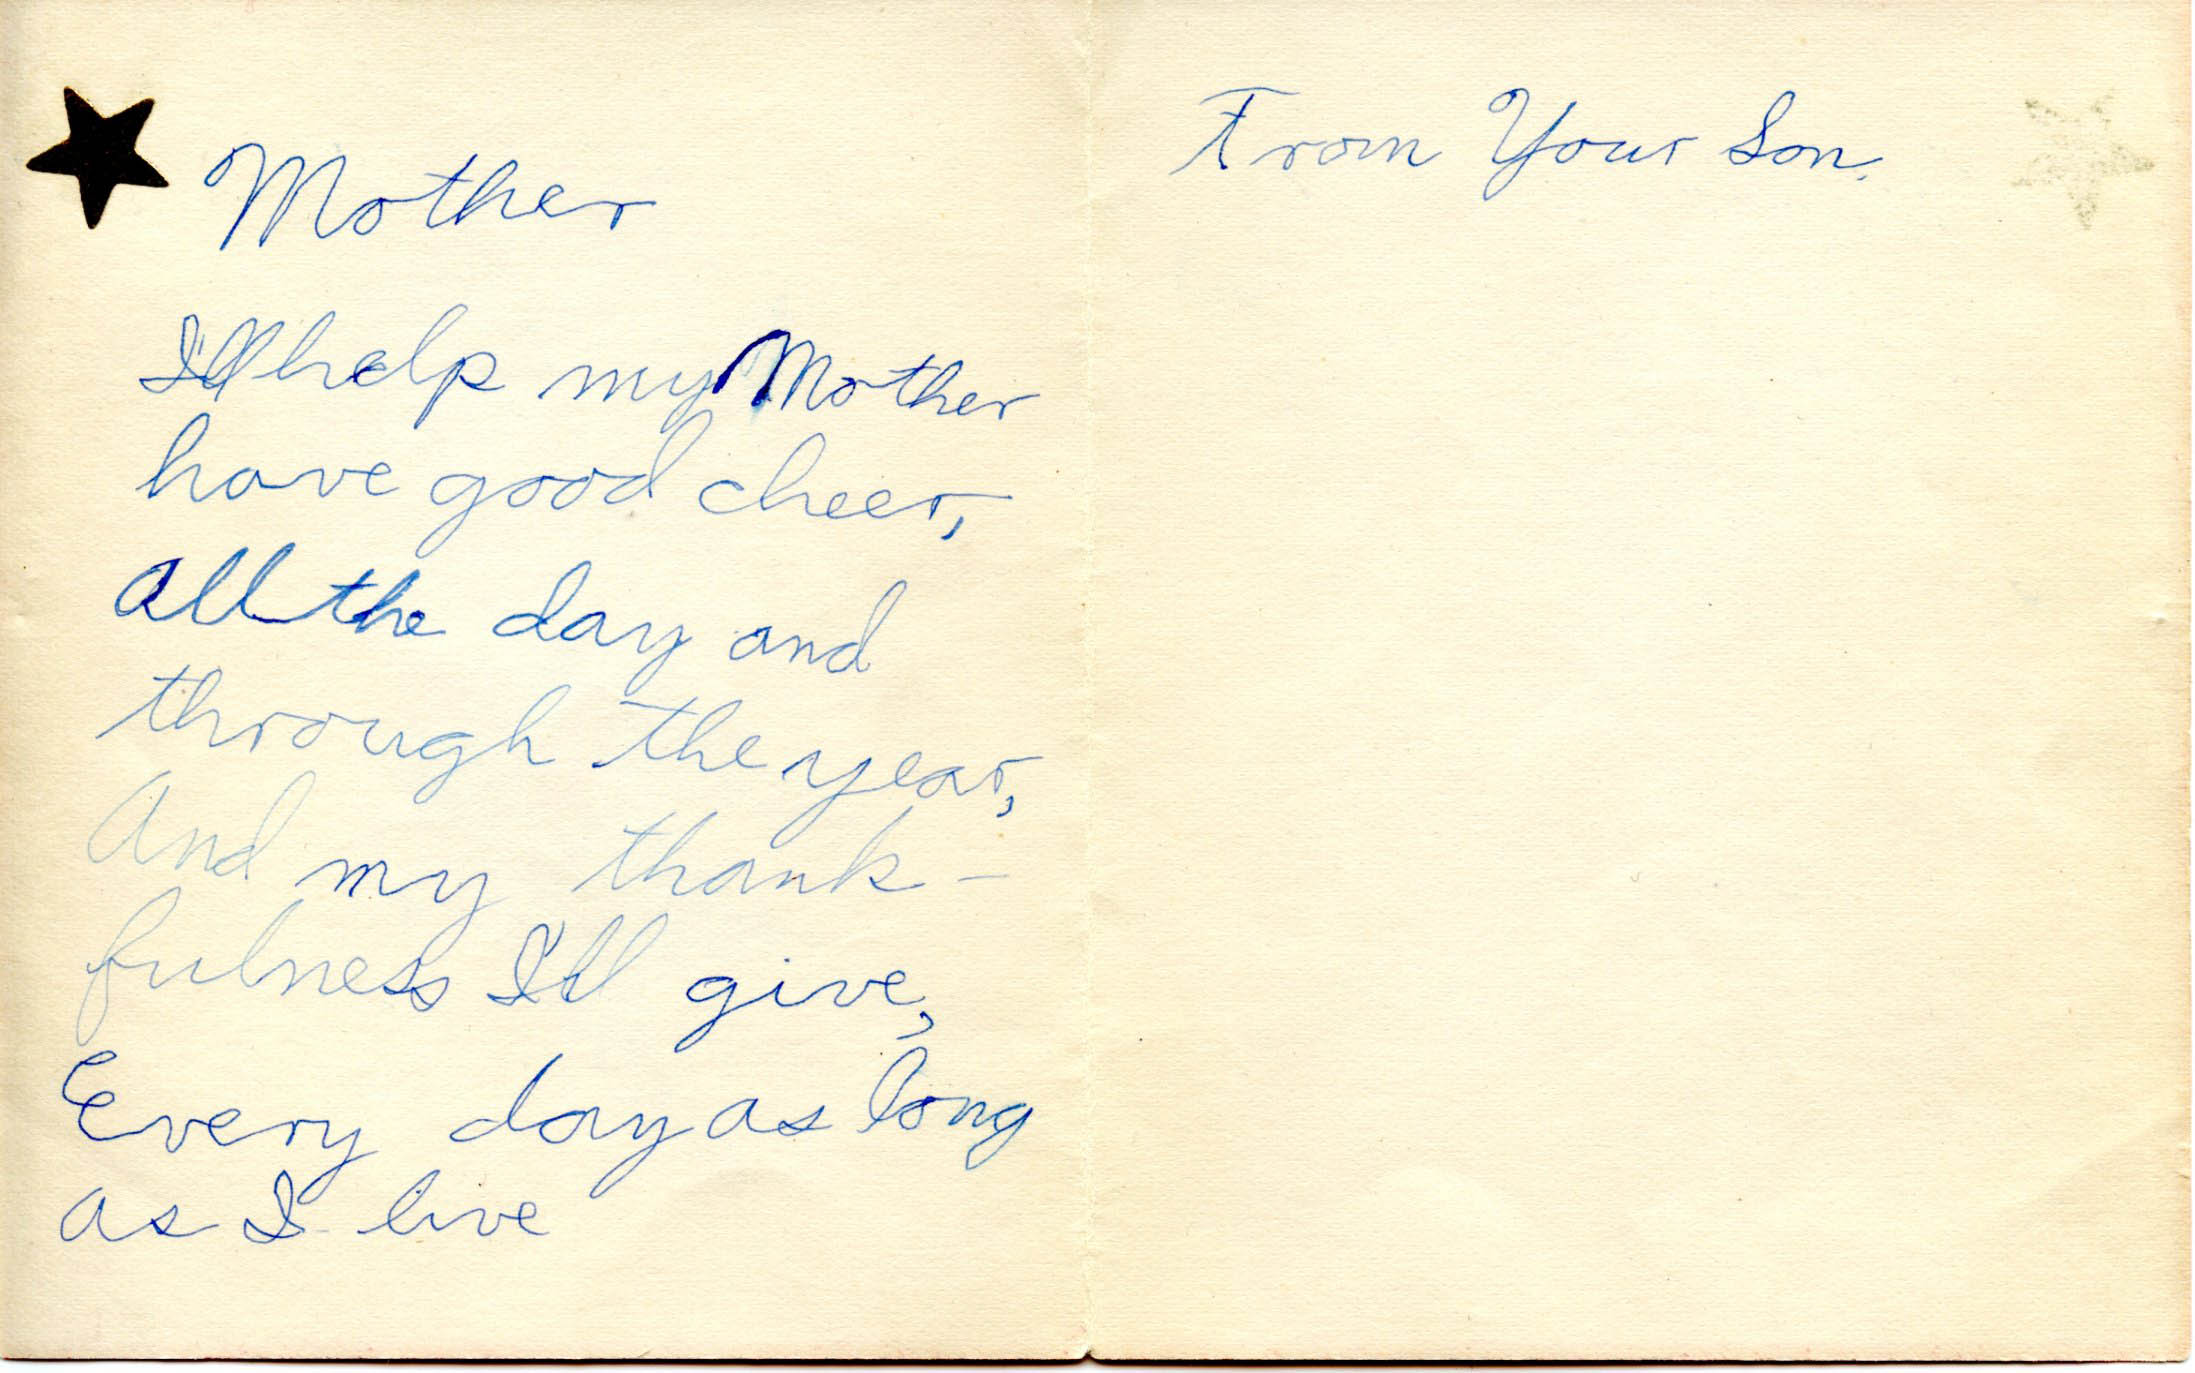 Mother
I'll help my Mother
have good cheer,
All the day and
through the year,
And my thank-
fulness I'll give,
Every day as long
as I live
From Your Son.